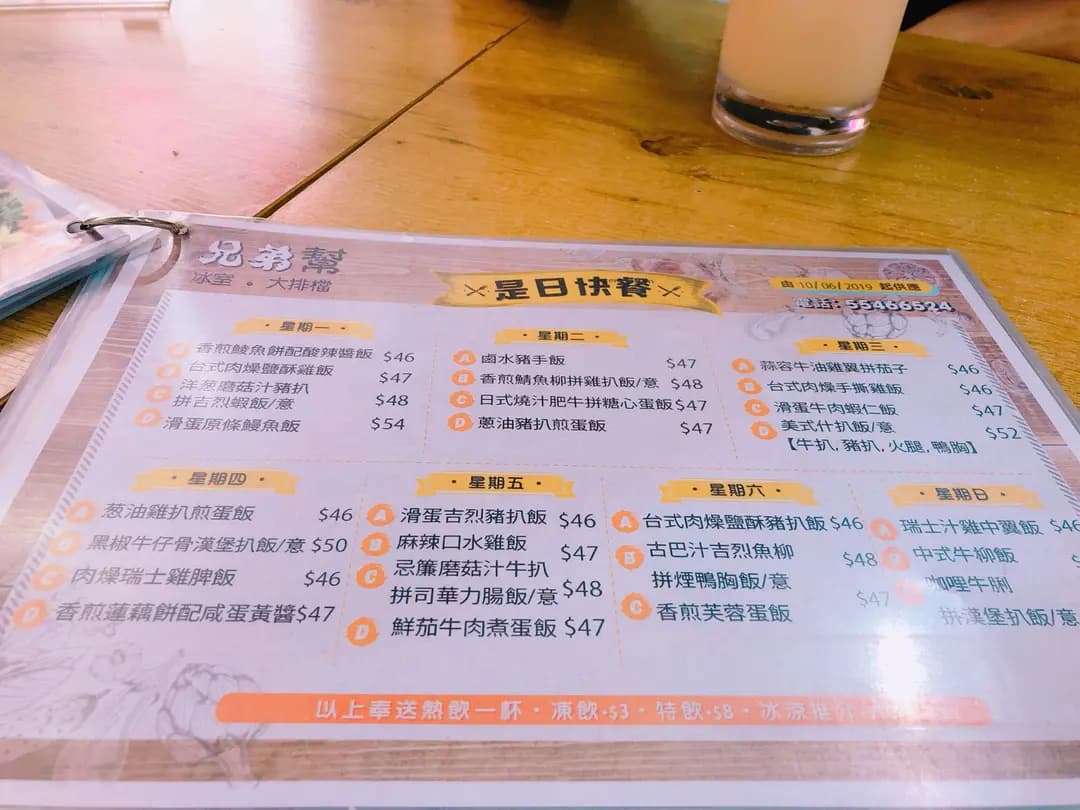 兄弟幫
冰室。大排檔
是日快餐
由 10/06/2019 起供應
電話: 55466524
·星期一·
A 香煎鯪魚餅配酸辣醬飯 $46
台式肉燥鹽酥雞飯 $47
C 洋葱蘑菇汁豬扒
拼吉烈蝦飯/意 $48
D 滑蛋原條鰻魚飯 $54
·星期二·
A 鹵水豬手飯 $47
B 香煎鯖魚柳拼雞扒飯/意 $48
C 日式燒汁肥牛拼糖心蛋飯 $47
D 蔥油豬扒煎蛋飯 $47
·星期三·
A 蒜容牛油雞翼拼茄子 $46
B 台式肉燥手撕雞飯 $46
C 滑蛋牛肉蝦仁飯 $47
D 美式什扒飯/意 $52
【牛扒, 豬扒, 火腿, 鴨胸】
·星期四·
A 葱油雞扒煎蛋飯 $46
B 黑椒牛仔骨漢堡扒飯/意 $50
C 肉燥瑞士雞脾飯 $46
D 香煎蓮藕餅配咸蛋黃醬 $47
·星期五·
A 滑蛋吉烈豬扒飯 $46
B 麻辣口水雞飯 $47
C 忌簾蘑菇汁牛扒
拼司華力腸飯/意 $48
D 鮮茄牛肉煮蛋飯 $47
·星期六·
A 台式肉燥鹽酥豬扒飯 $46
B 古巴汁吉烈魚柳 $48
拼煙鴨胸飯/意
C 香煎芙蓉蛋飯 $47
·星期日·
A 瑞士汁雞中翼飯 $46
中式牛柳飯
咖哩牛脷
拼漢堡扒飯/意
以上奉送熱飲一杯·凍飲+$3·特飲+$8·冰涼